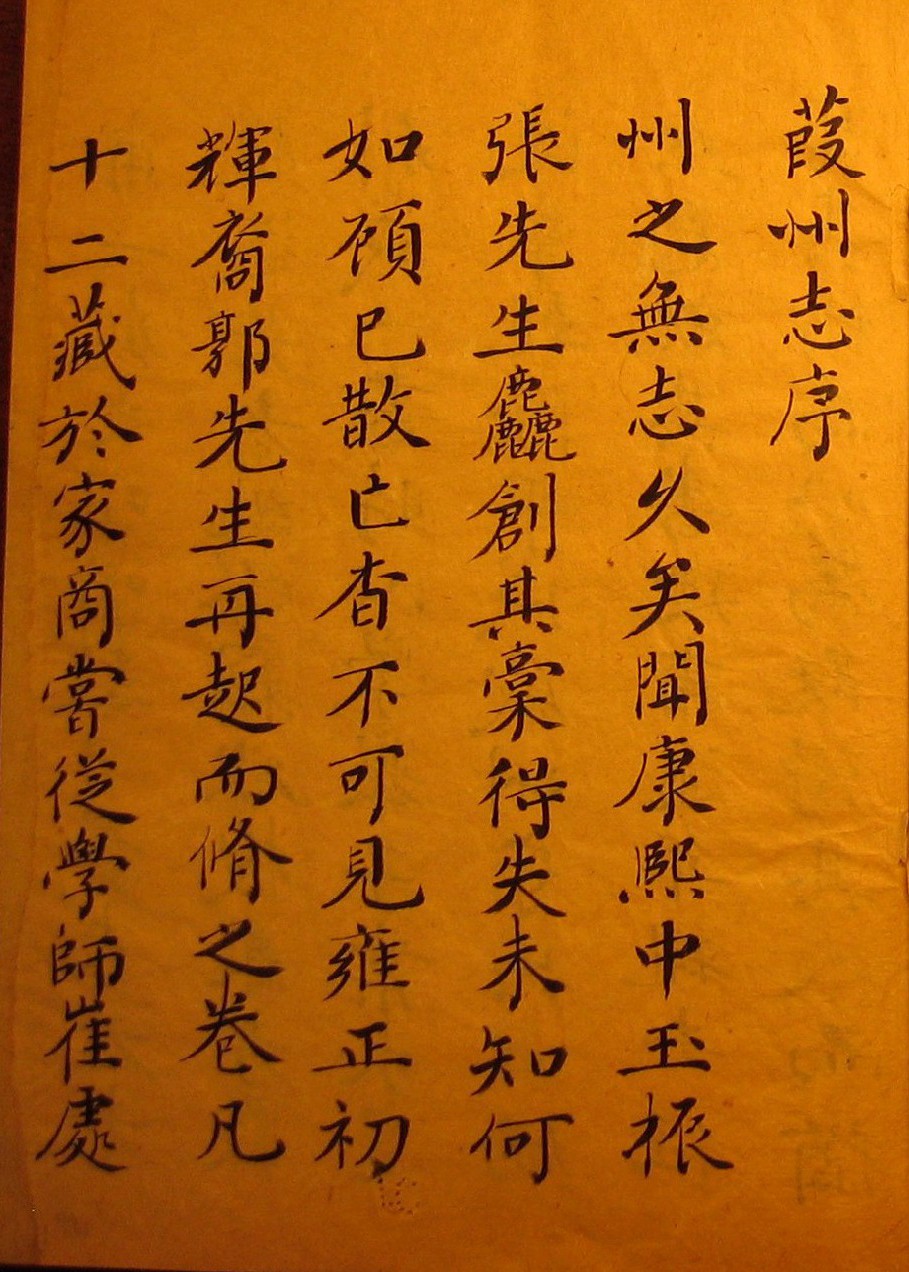 葭州志序
州之無志久矣聞康熙中玉振
張先生麤創其稾得失未知何
如頋已散亡杳不可見雍正初
輝裔郭先生再起而脩之卷凡
十二藏於家商嘗從學師崔處